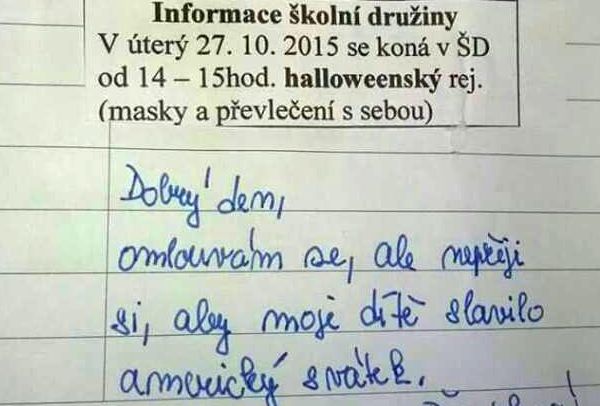 Informace školní družiny
V úterý 27. 10. 2015 se koná v ŠD
od 14 – 15hod. halloweenský rej.
(masky a převlečení s sebou)
Dobrý den,
omlouvám se, ale nepřeji
si, aby moje dítě slavilo
americký svátek.